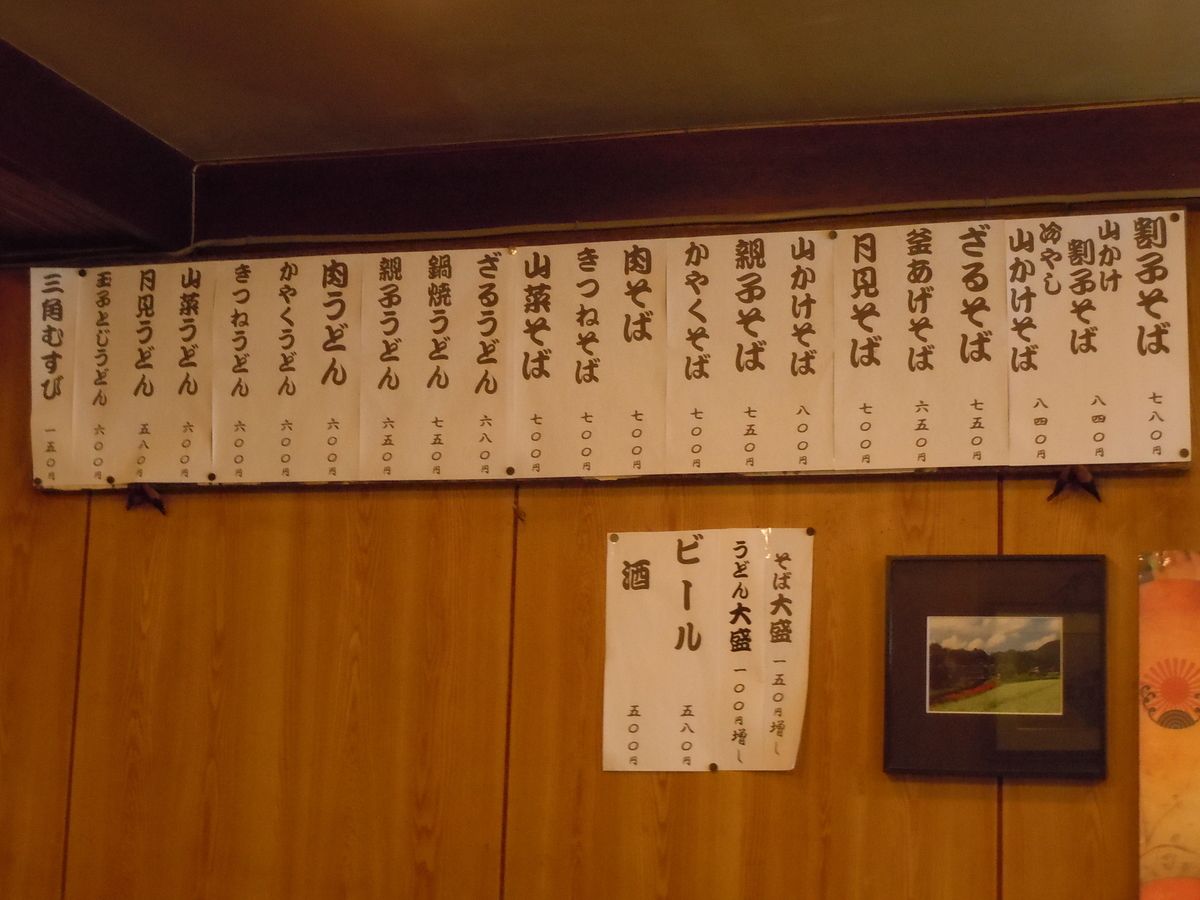 割子そば 七八〇円
山かけ割子そば 八四〇円
冷やし山かけそば 八四〇円
ざるそば 七五〇円
釜あげそば 六五〇円
月見そば 七〇〇円
山かけそば 八〇〇円
親子そば 七五〇円
かやくそば 七〇〇円
肉そば 七〇〇円
きつねそば 七〇〇円
山菜そば 七〇〇円
ざるうどん 六八〇円
鍋焼うどん 七五〇円
親子うどん 六五〇円
肉うどん 六〇〇円
かやくうどん 六〇〇円
きつねうどん 六〇〇円
山菜うどん 六〇〇円
月見うどん 五八〇円
玉子とじうどん 六〇〇円
三角むすび 一五〇円
そば大盛 一五〇円増し
うどん大盛 一〇〇円増し
ビール 五八〇円
酒 五〇〇円